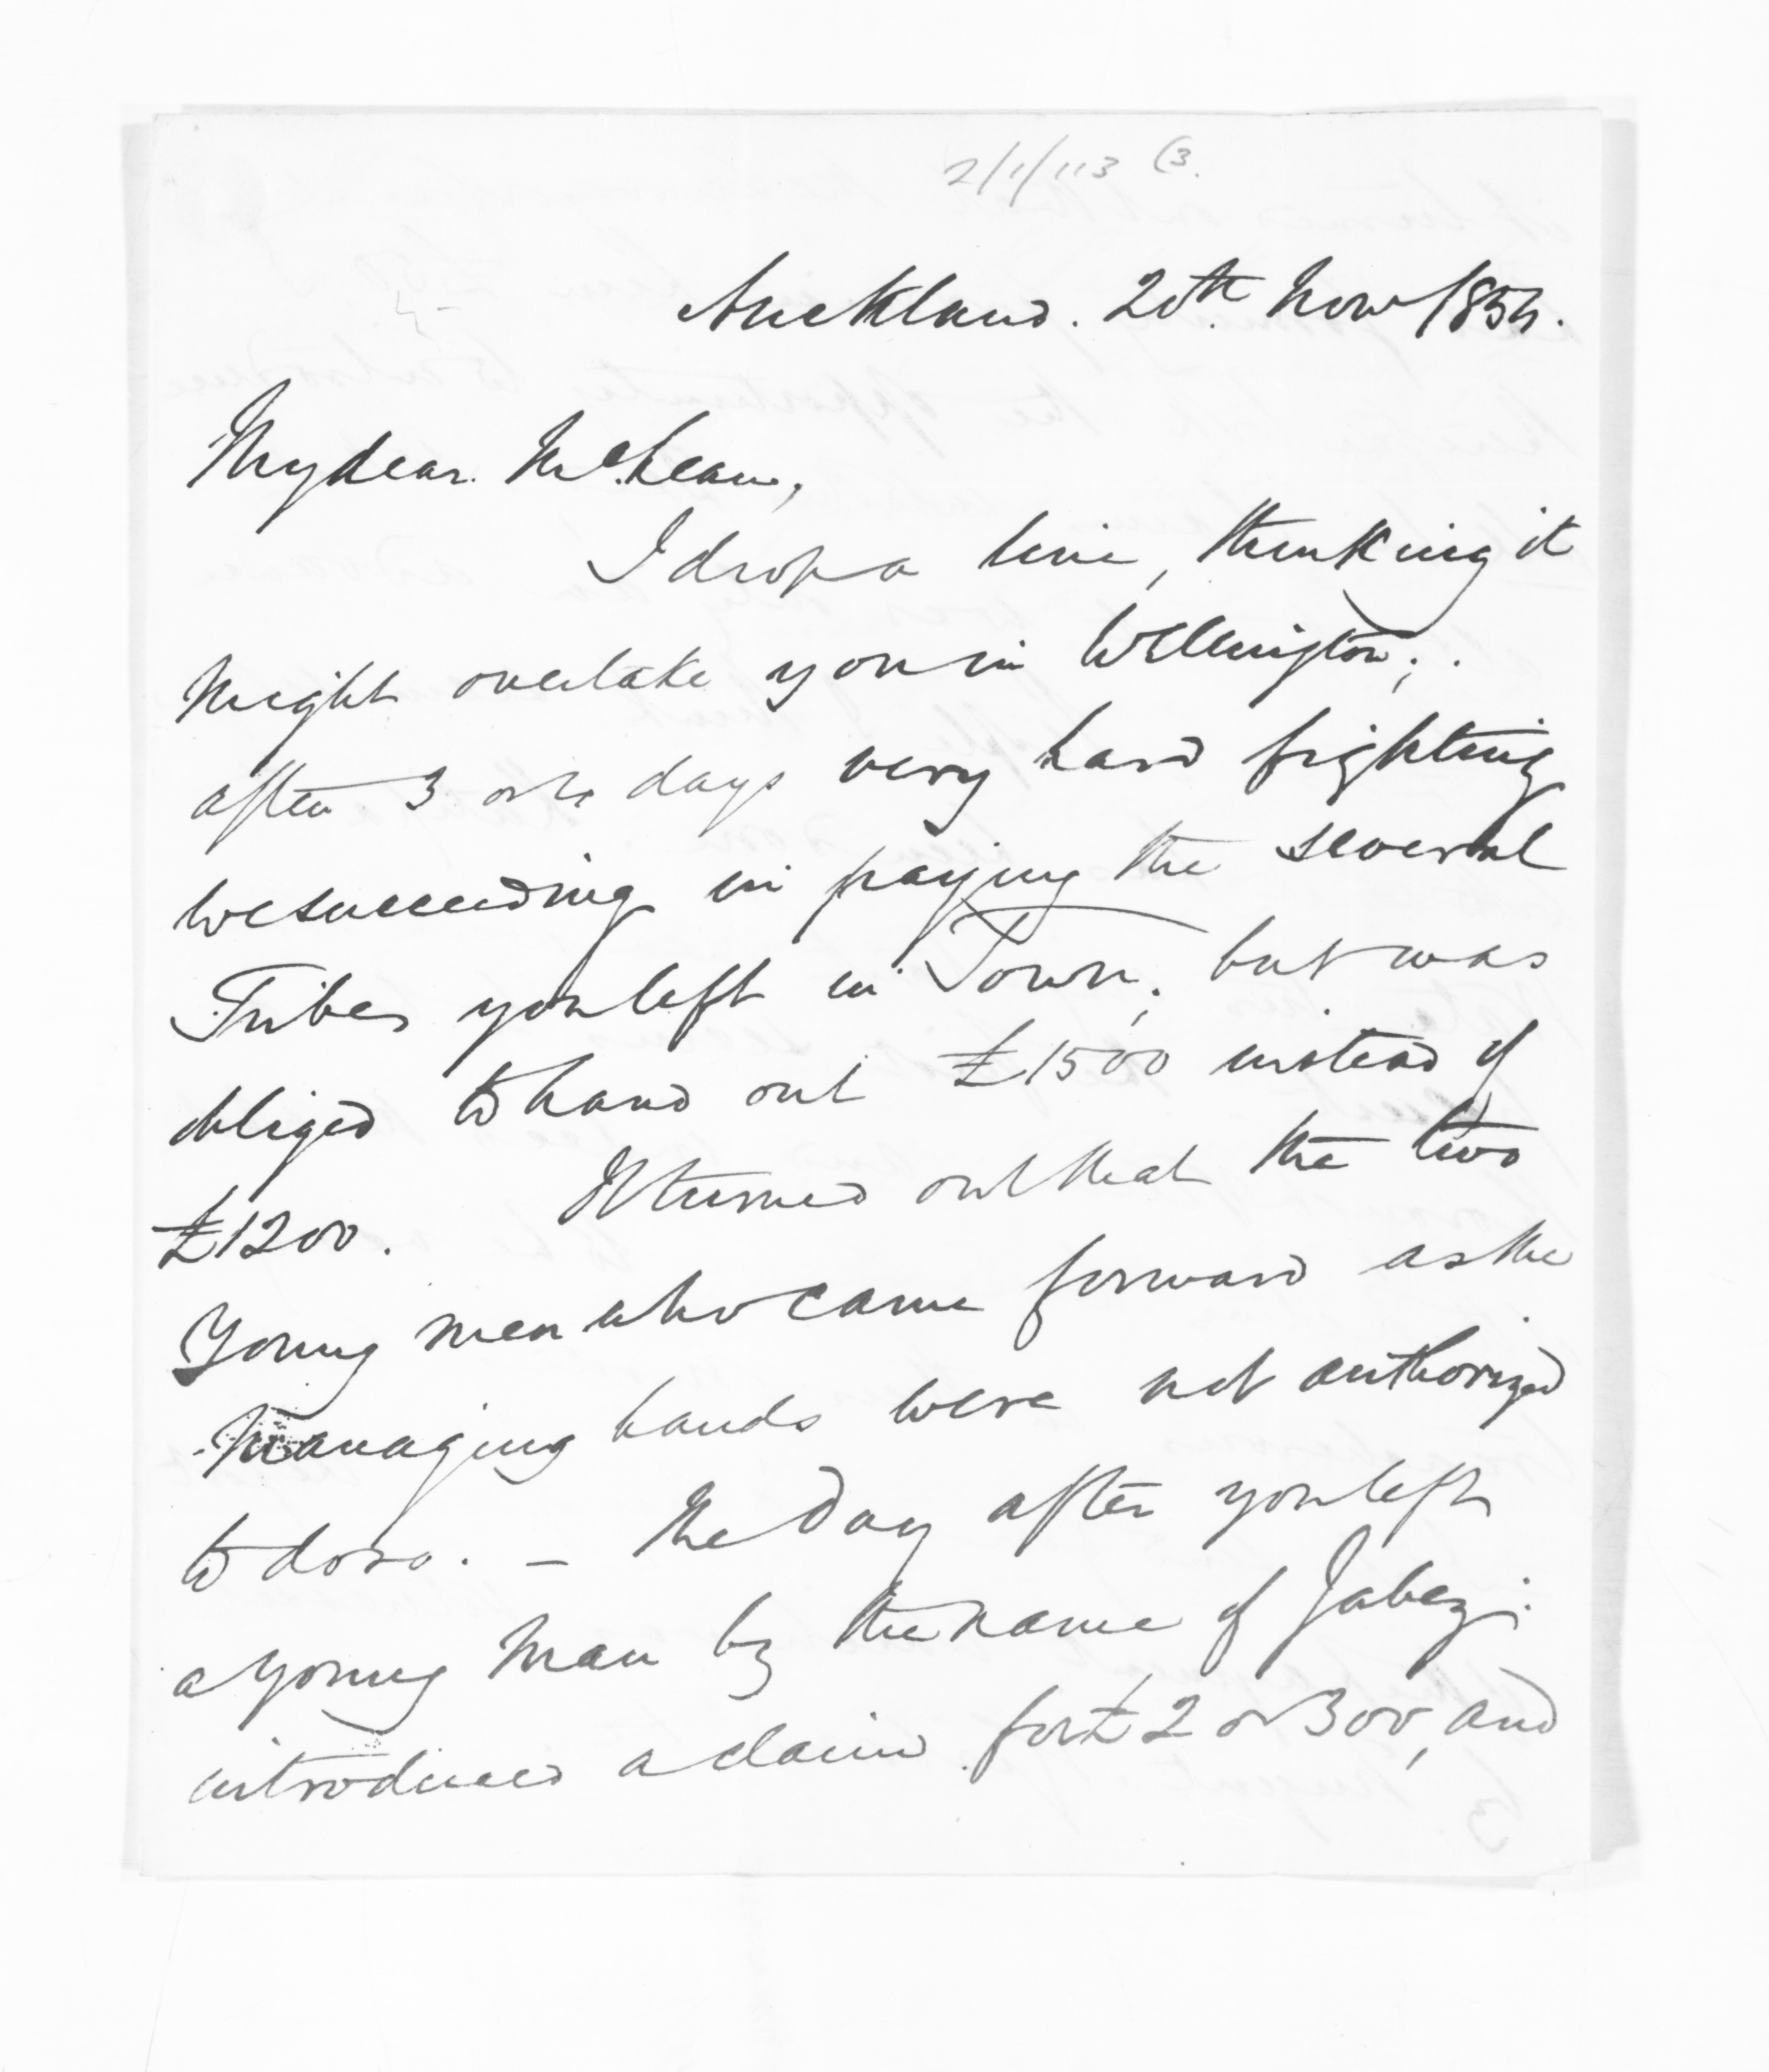 2/1/113 (3.
Auckland. 20th. Novr 1854.
My dear. McLean,
I drop a line, thinking it
might overtake you in Wellington;.
after 3 or 4 days very hard fighting
we succeeding in paying the several
Tribes you left in Town; but was
obliged to hand out £1500 instead of
£1200. It turned out that the two
Young men who came forward as the
Managing hands were not authorized
to do so. — The day after you left
a young Man by the name of Jabez;
introduced a claim for £2 or 300, and